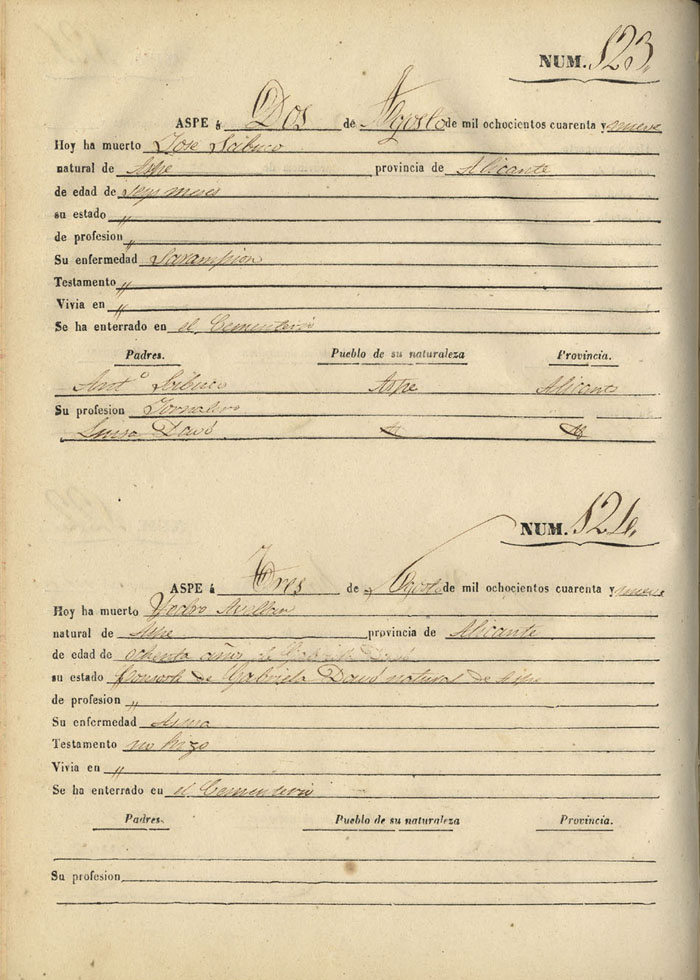 NUM. 123.
ASPE á Dos de Agosto de mil ochocientos cuarenta y nueve
Hoy ha muerto Jose Sabuco
natural de Aspe provincia de Alicante
de edad de seys meses
su estado „
de profesion „
Su enfermedad Sarampion
Testamento „
Vivia en „
Se ha enterrado en el Cementerio
Padres. Pueblo de su naturaleza Provincia.
Antº Sabuco Aspe Alicante
Su profesion Jornalero
Luisa Davó
NUM. 124.
ASPE á Tres de Agosto de mil ochocientos cuarenta y nueve
Hoy ha muerto Pedro Avellan
natural de Aspe provincia de Alicante
de edad de ochenta años de Gabriela Davó
su estado Consorte de Gabriela Davó natural de Aspe
de profesion „
Su enfermedad Asma
Testamento no hizo
Vivia en „
Se ha enterrado en el Cementerio
Padres. Pueblo de su naturaleza Provincia.
Su profesion